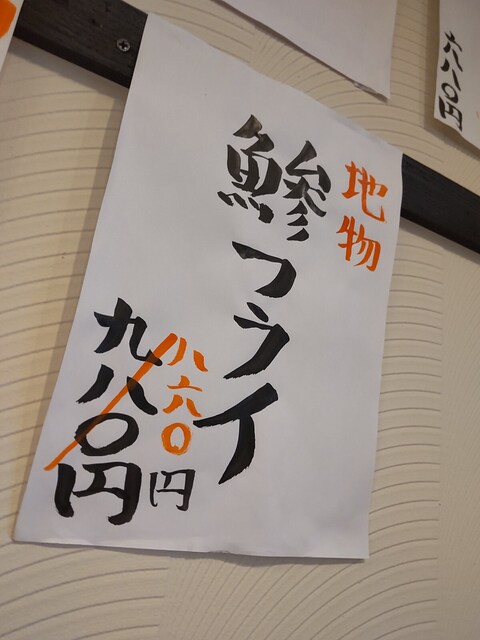 地物
鰺フライ
八六〇円
九八〇円
六八〇円